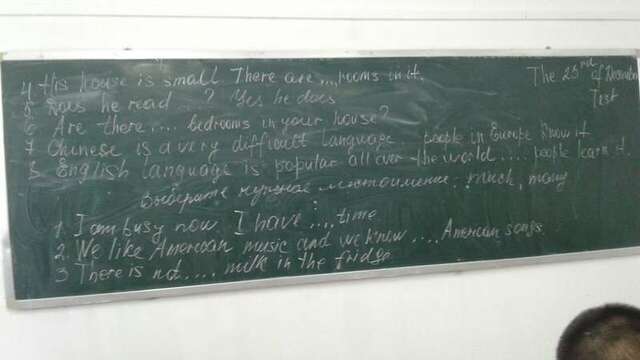 The 23rd of December
Test
4 this house is small. There are ... rooms in it.
5 Does he read ...? Yes he does
6 Are there .... bedrooms in your house?
7 Chinese is a very difficult language people in Europe know it
8 English language is popular all over the world .... people learn it.
Выберите нужное местоимение: much, many
1. I am busy now I have .... time
2. We like American music and we know .... American songs.
3 There is not .... milk in the fridge